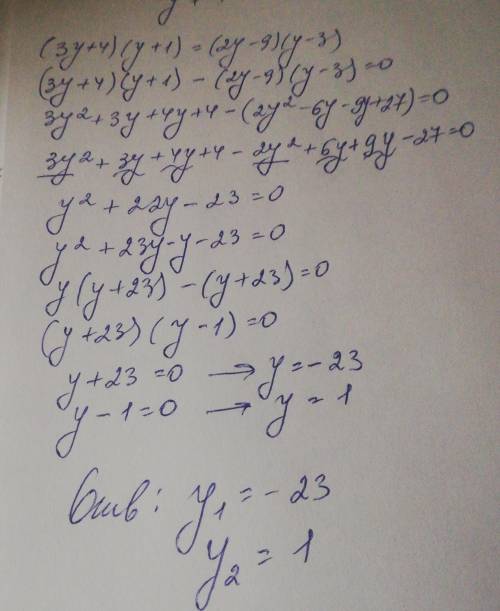 (3y+4)(y+1)=(2y-9)(y-3)
(3y+4)(y+1)-(2y-9)(y-3)=0
3y²+3y+4y+4-(2y²-6y-9y+27)=0
3y²+3y+4y+4-2y²+6y+9y-27=0
y²+22y-23=0
y²+23y-y-23=0
y(y+23)-(y+23)=0
(y+23)(y-1)=0
y+23=0 → y=-23
y-1=0 → y=1
Отв: y₁=-23
y₂=1